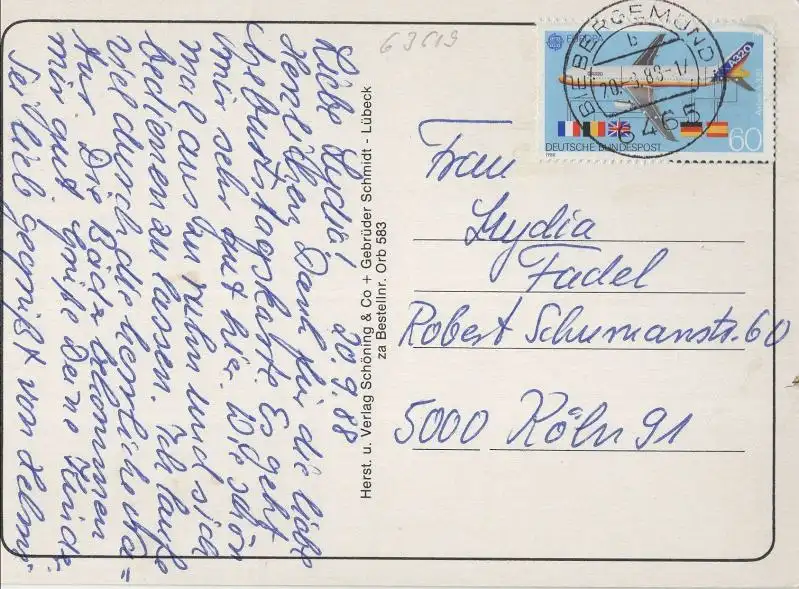 63619
Liebe Lydia! 20.9.88
Herzlichen Dank für die liebe
Geburtstagskarte. Es geht
mir sehr gut hier. Wie schön
mal aus zu ruhn und sich
bedienen zu lassen. Ich laufe
viel durch die herrliche Na=
tur. Die Bäder bekommen
mir gut. Grüße Deine Kinder
Sei lieb gegrüßt von Helmi
Herst. u. Verlag Schöning & Co + Gebrüder Schmidt - Lübeck
za Bestellnr. Orb 583
EUROPA
A320
DEUTSCHE BUNDESPOST
60
1988
BIEBERGEMÜND
b
6465
Frau
Lydia
Fadel
Robert Schumanstr. 60
5000 Köln 91